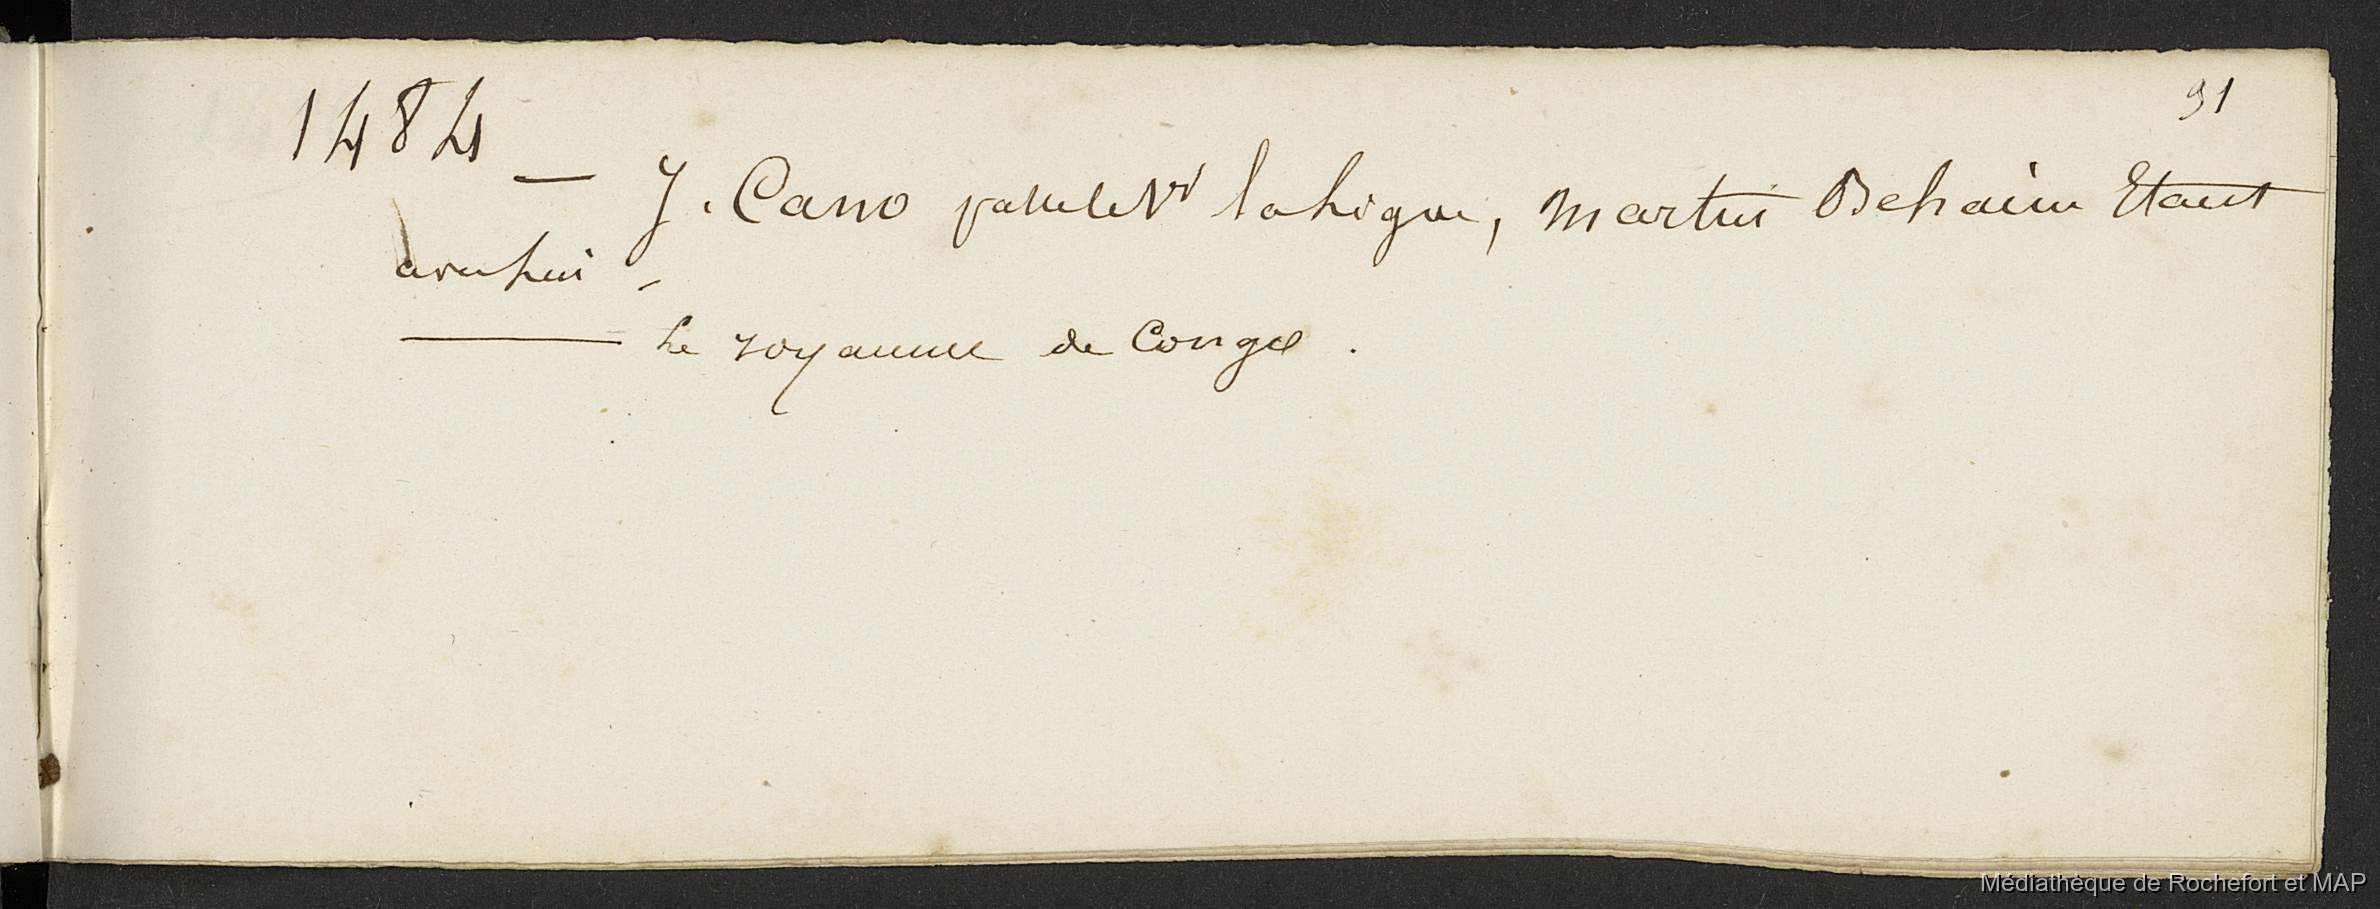 91
1484 — J. Cano passe la ligne, Martin Behaim Etant
avec lui -
— Le royaume de Congo.
Médiathèque de Rochefort et MAP